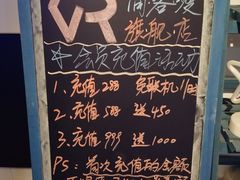 VR
旗舰店
*会员充值活动
1、充值288 免费机1日
2、充值588 送450
3、充值999 送1000
PS:首次充值的金额